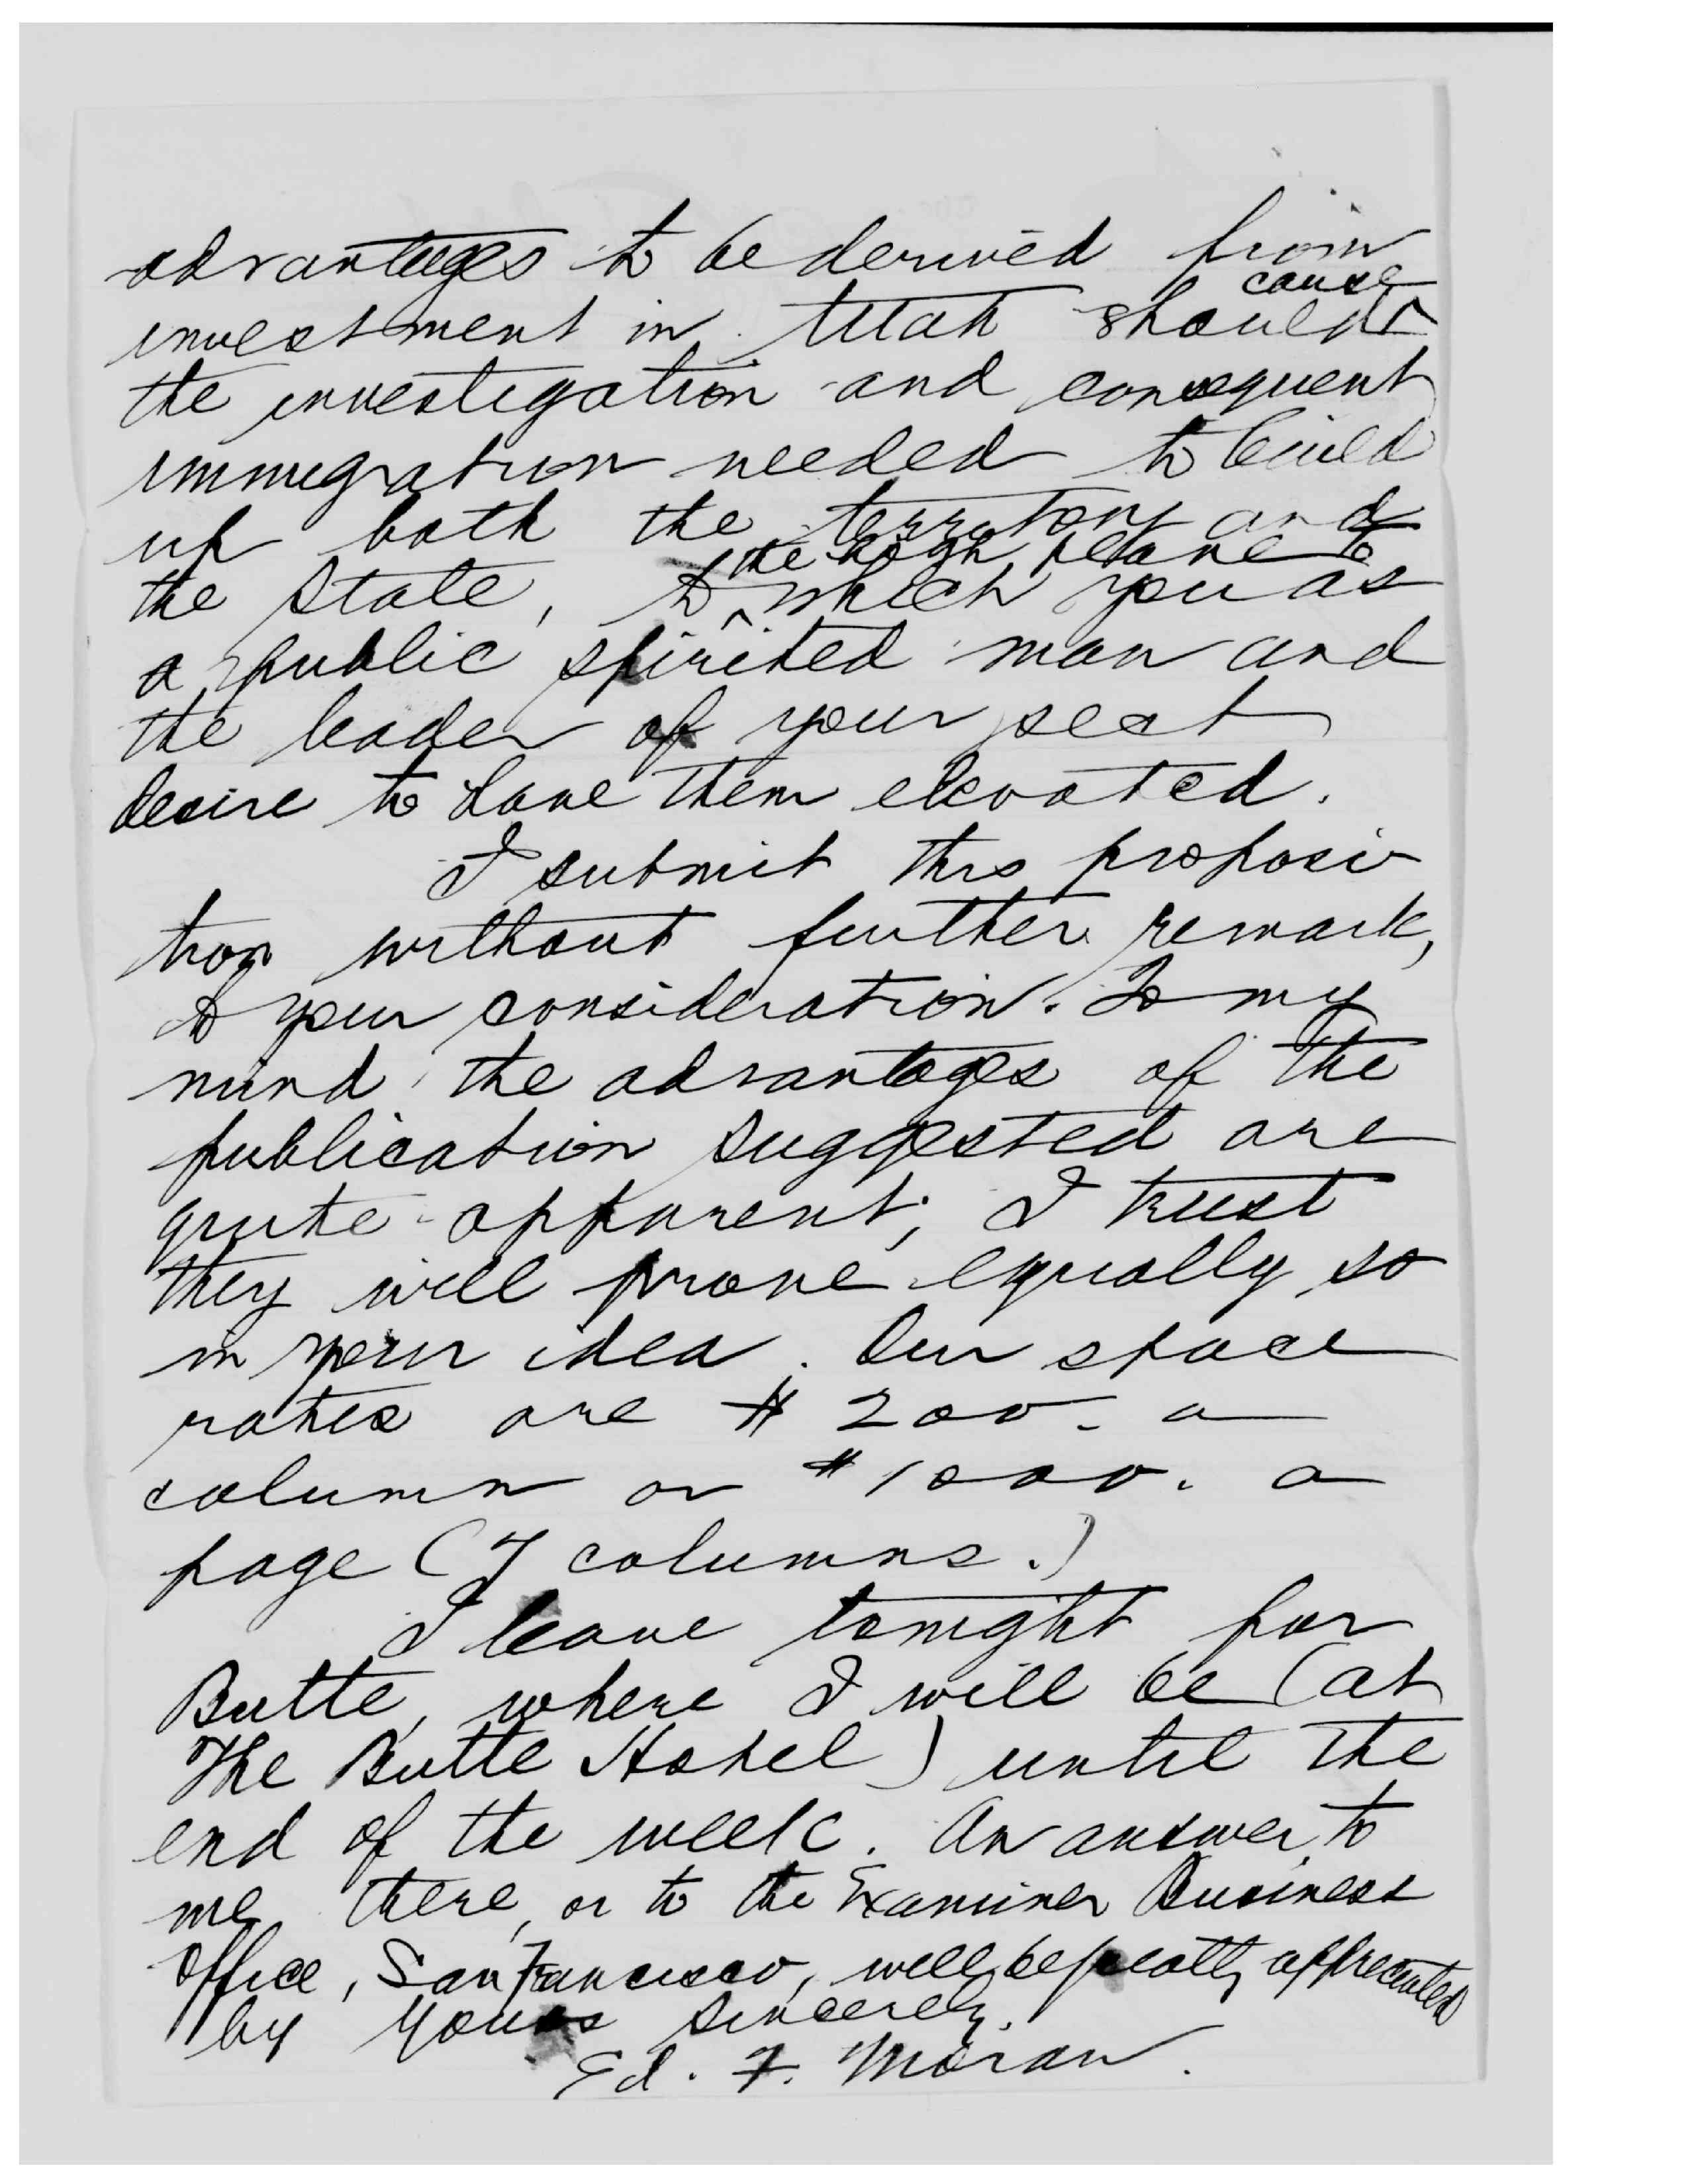 advantages to be derived from
investment in Utah should ^cause
the investigation and consequent
immigration needed to build
up both the territory and
the State, to ^the high plane to which you as
a public spirited man and
the leader of your sect
desire to have them elevated.
I submit this proposi
tion without further remark,
to your consideration. To my
mind, the advantages of the
publication suggested are
quite apparent; I trust
they will prove equally so
in your idea. Our space
rates are $200. a
column or $1000. a
page (7 columns.)
I leave tonight for
Butte, where I will be (at
The Butte Hotel) until the
end of the week. An answer to
me there, or to the Examiner Business
Office, San Francisco, will be greatly appreciated
by Yours Sincerely,
Ed. F. Moran.